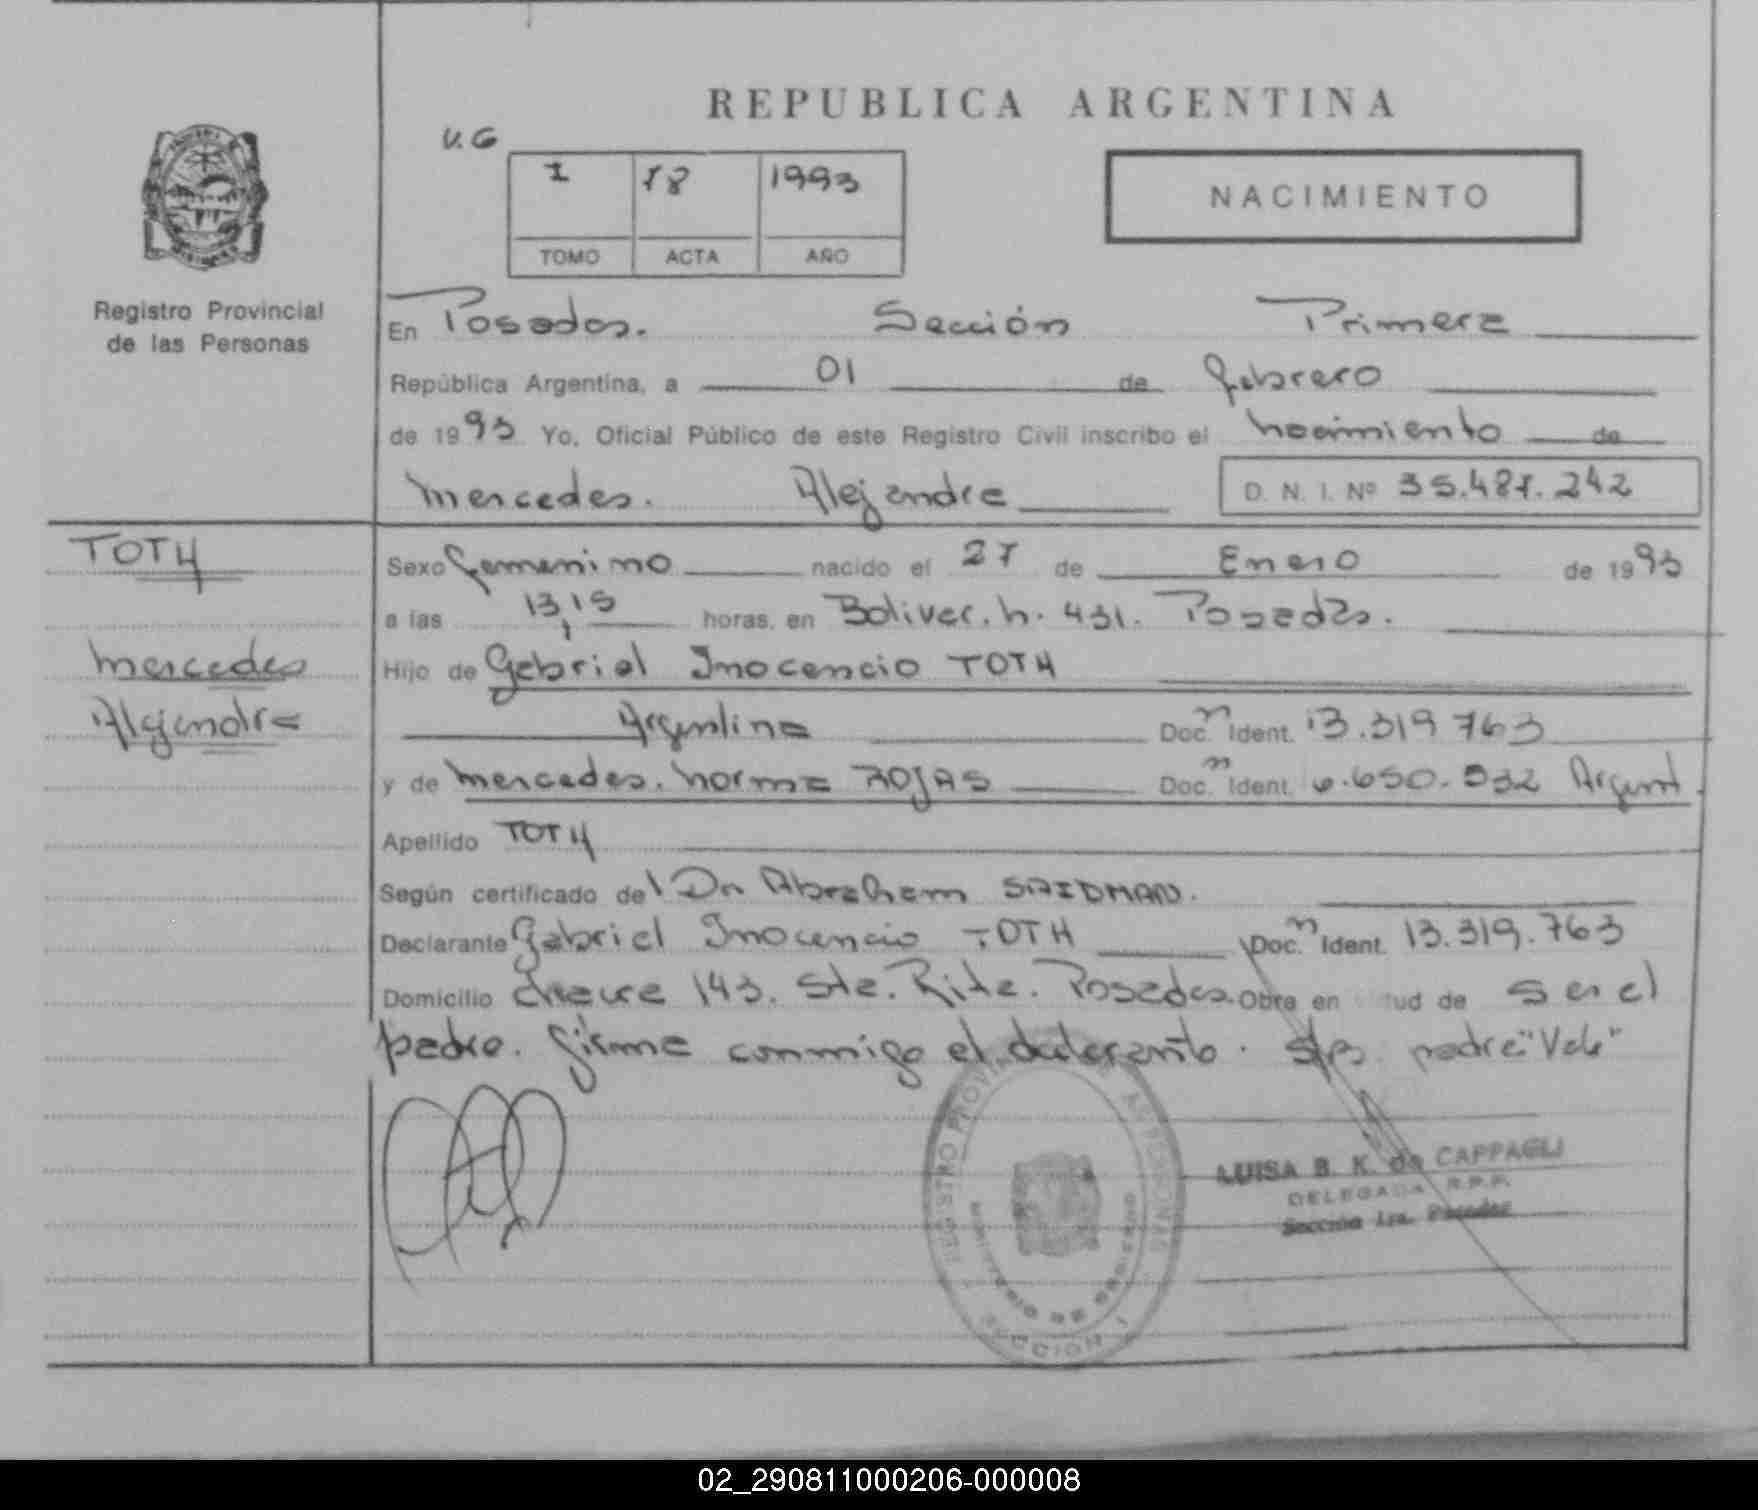 REPUBLICA ARGENTINA
V.G
I 18 1993
TOMO ACTA AÑO
NACIMIENTO
Registro Provincial
de las Personas
En Posadas. Sección Primera
República Argentina, a 01 de febrero
de 1993 Yo, Oficial Público de este Registro Civil inscribo el nacimiento de
Mercedes. Alejandra D. N. I. Nº 35.487.242
TOTH
Mercedes
Alejandra
Sexo Femenino nacido el 27 de Enero de 1993
a las 13,15 horas, en Bolivar. N. 431. Posadas.
Hijo de Gabriel Inocencio TOTH
Argentina Doc. n Ident. 13.319 763
y de Mercedes. Norma ROJAS Doc. n Ident. 6.650.532 Argent.
Apellido TOTH
Según certificado del Dr Abraham SAIDMAN.
Declarante Gabriel Inocencio TOTH Doc. n Ident. 13.319.763
Domicilio 143. Sta. Rita. Posadas. Obra en tud de ser el
padre. firma conmigo el declarante. S/R padre "Vale"
REGISTRO PROVINCIAL DE LAS PERSONAS
MINISTERIO DE GOBIERNO
SECCION 1
LUISA B. K. de CAPPAGLI
DELEGADA R.P.P.
Sección 1ra. Posadas
02_290811000206-000008